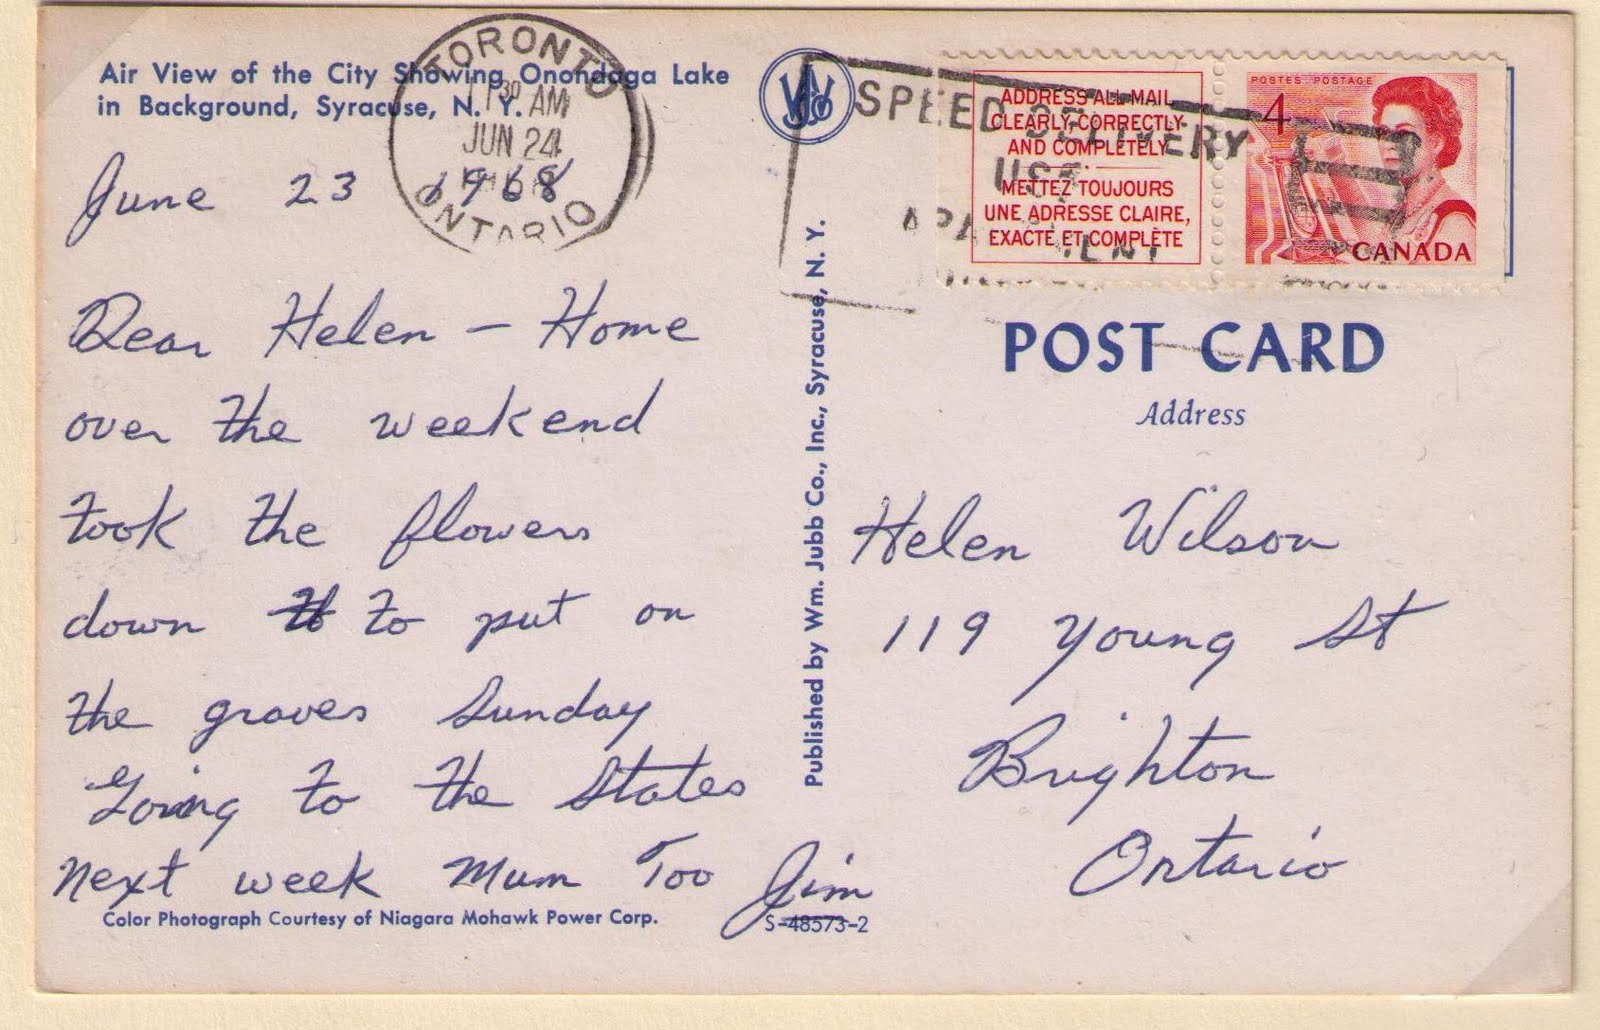 Air View of the City Showing Onondaga Lake
in Background, Syracuse, N. Y.
TORONTO
11 30 AM
JUN 24
ONTARIO
June 23 1968
Dear Helen - Home
over the weekend
took the flowers
down to put on
the graves Sunday
Going to the States
Next week Mum Too Jim
Color Photograph Courtesy of Niagara Mohawk Power Corp.
S-48573-2
Published by Wm. Jubb Co., Inc., Syracuse, N. Y.
SPEED DELIVERY
USE
ADDRESS ALL MAIL
CLEARLY, CORRECTLY
AND COMPLETELY
METTEZ TOUJOURS
UNE ADRESSE CLAIRE,
EXACTE ET COMPLÈTE
POSTES POSTAGE
4
CANADA
POST CARD
Address
Helen Wilson
119 Young St
Brighton
Ontario